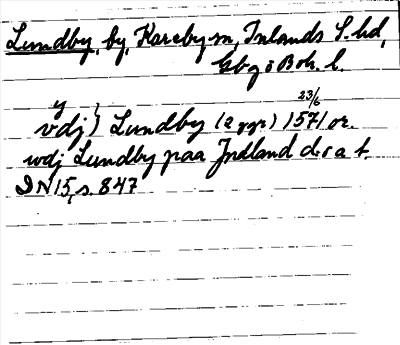 Lundby, by, Kareby sn, Inlands S. hd,
Gbg o Boh. l.
y
vdj } Lundby (2 ggr) 23/6 1571 or.
wdj Lundby paa Jndland d: s a t.
DN 15, s. 847